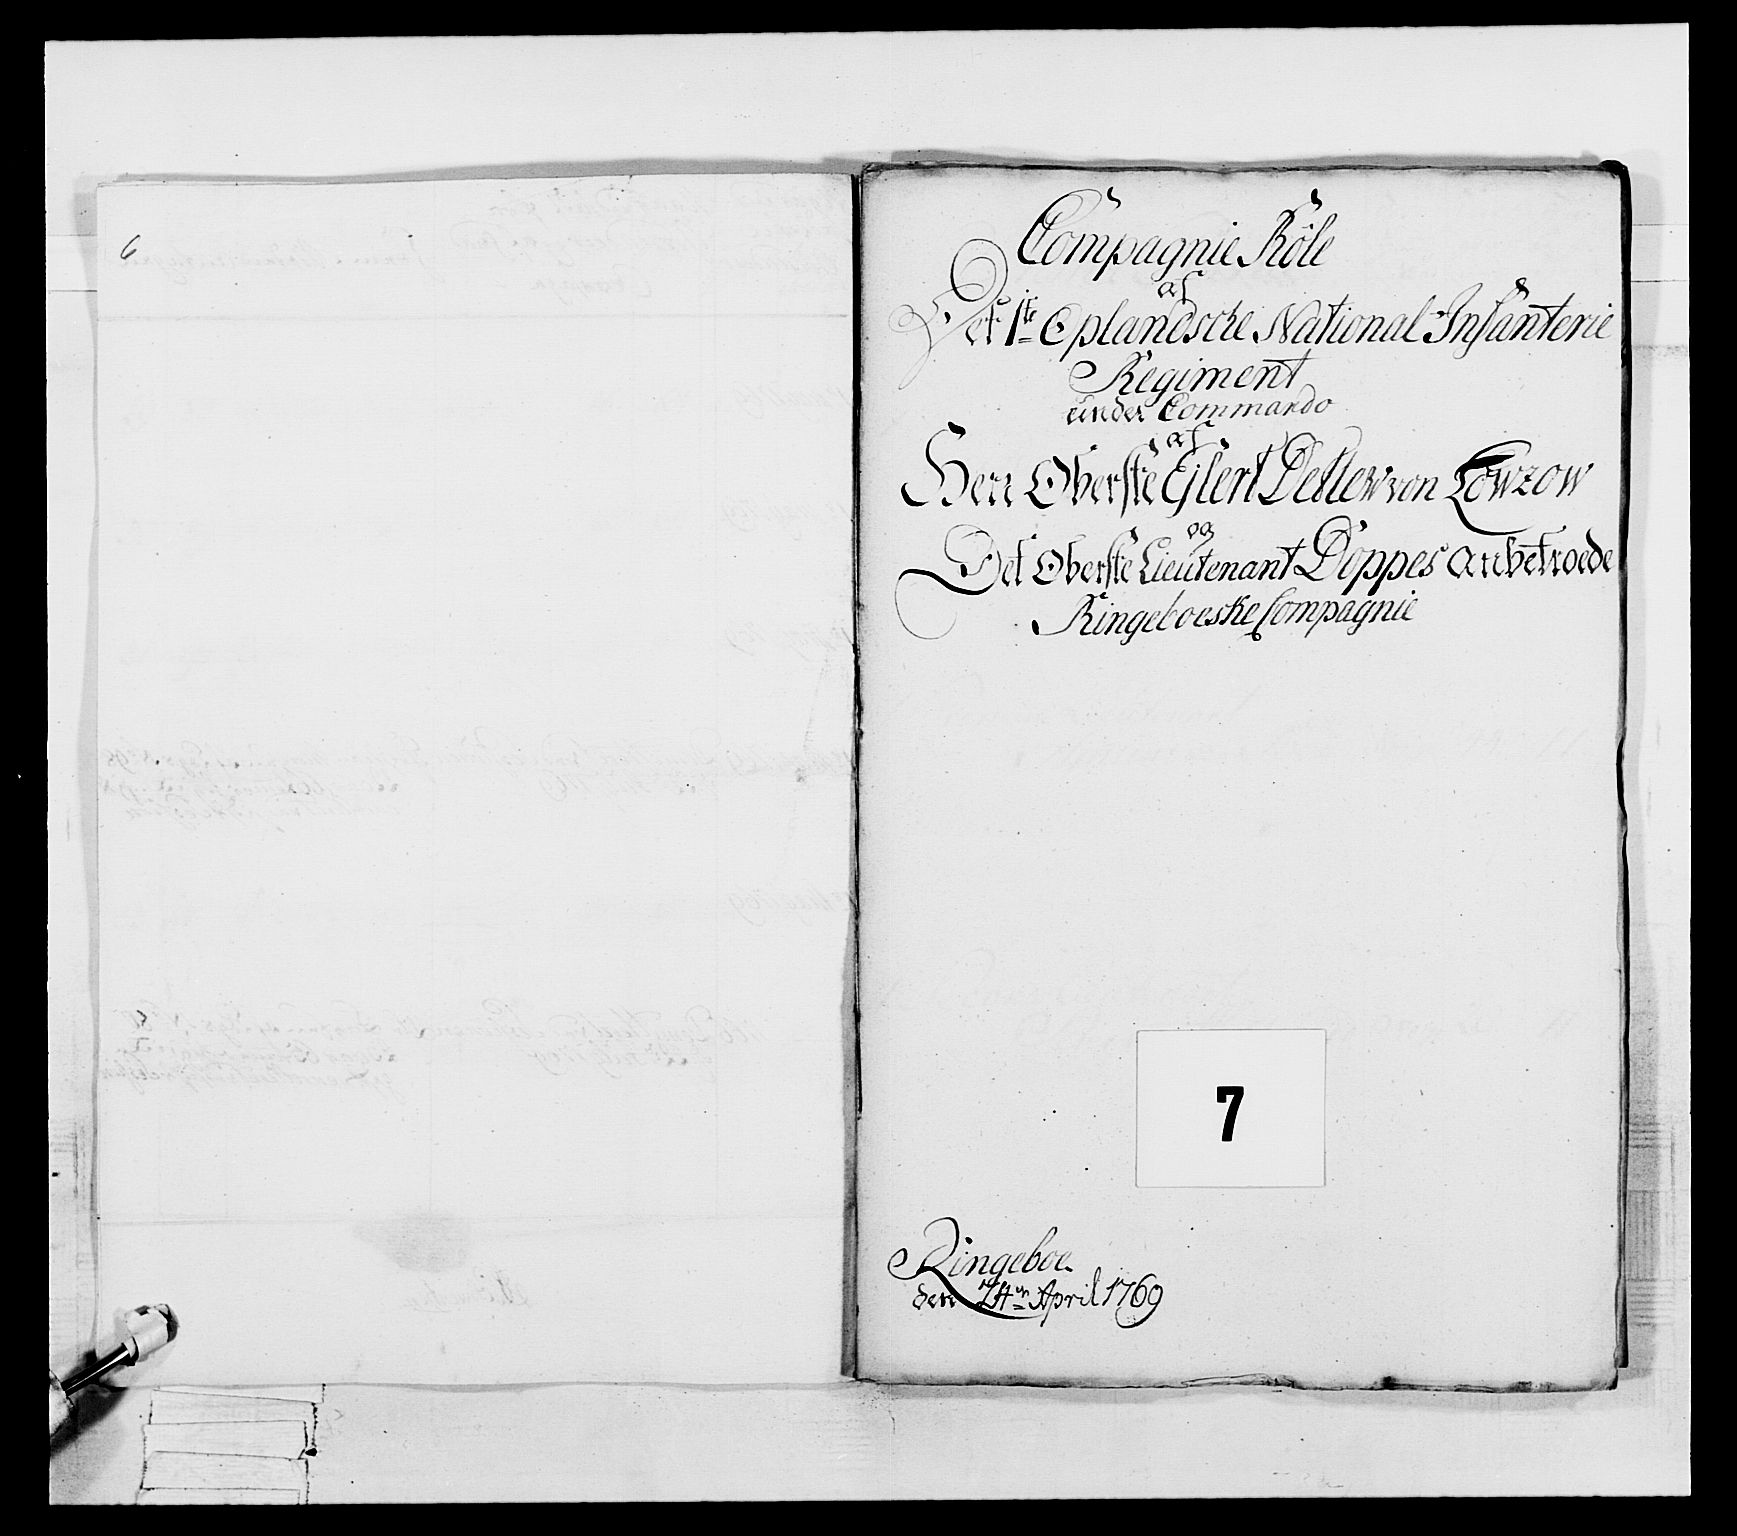 6
Compagnie Rôle
af
Det 1te Oplandsche National Infanterie
Regiment
under Commando
af
Herr Oberste Eilert Detlew von Lowzow
og
Det Oberste Lieutenant Doppes anbetroede
Ringeboeske Compagnie
7
Ringeboe
den 24en April 1769